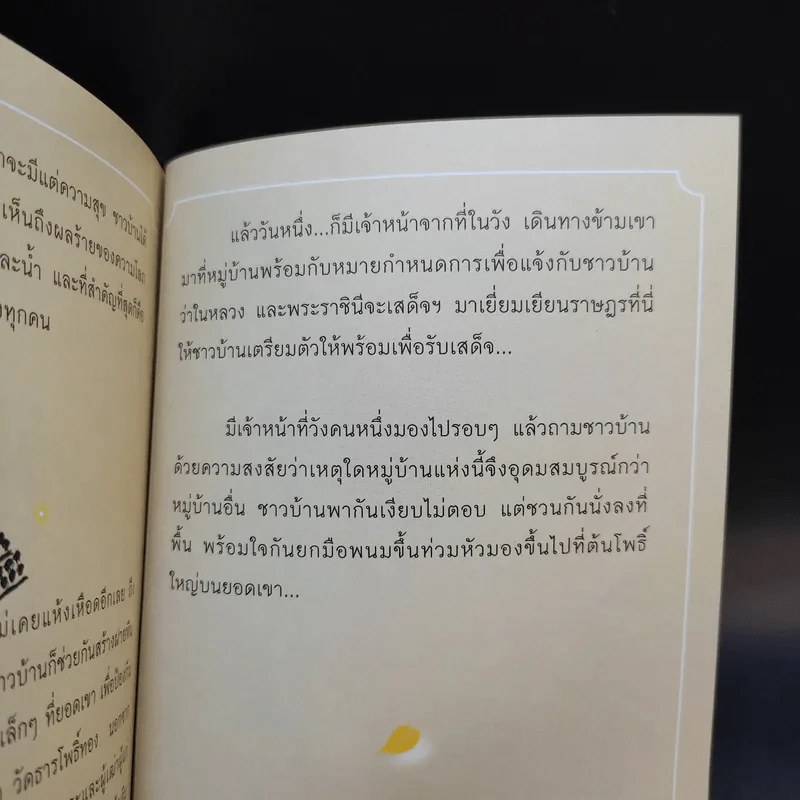 จะมีแต่ความสุข ชาวบ้านได้
เห็นถึงผลร้ายของความโลภ
ละน้ำ และที่สำคัญที่สุดก็คือ
ทุกคน
ม่เคยแห้งเหือดอีกเลย ถึง
าวบ้านก็ช่วยกันสร้างฝายหิน
เล็กๆ ที่ยอดเขา เพื่อป้องกัน
วัดธารโพธิ์ทอง นอกจาก
ะและผู้เฒ่าผู้แก่
แล้ววันหนึ่ง...ก็มีเจ้าหน้าจากที่ในวัง เดินทางข้ามเขา
มาที่หมู่บ้านพร้อมกับหมายกำหนดการเพื่อแจ้งกับชาวบ้าน
ว่าในหลวง และพระราชินีจะเสด็จฯ มาเยี่ยมเยียนราษฎรที่นี่
ให้ชาวบ้านเตรียมตัวให้พร้อมเพื่อรับเสด็จ...
มีเจ้าหน้าที่วังคนหนึ่งมองไปรอบๆ แล้วถามชาวบ้าน
ด้วยความสงสัยว่าเหตุใดหมู่บ้านแห่งนี้จึงอุดมสมบูรณ์กว่า
หมู่บ้านอื่น ชาวบ้านพากันเงียบไม่ตอบ แต่ชวนกันนั่งลงที่
พื้น พร้อมใจกันยกมือพนมขึ้นท่วมหัวมองขึ้นไปที่ต้นโพธิ์
ใหญ่บนยอดเขา...